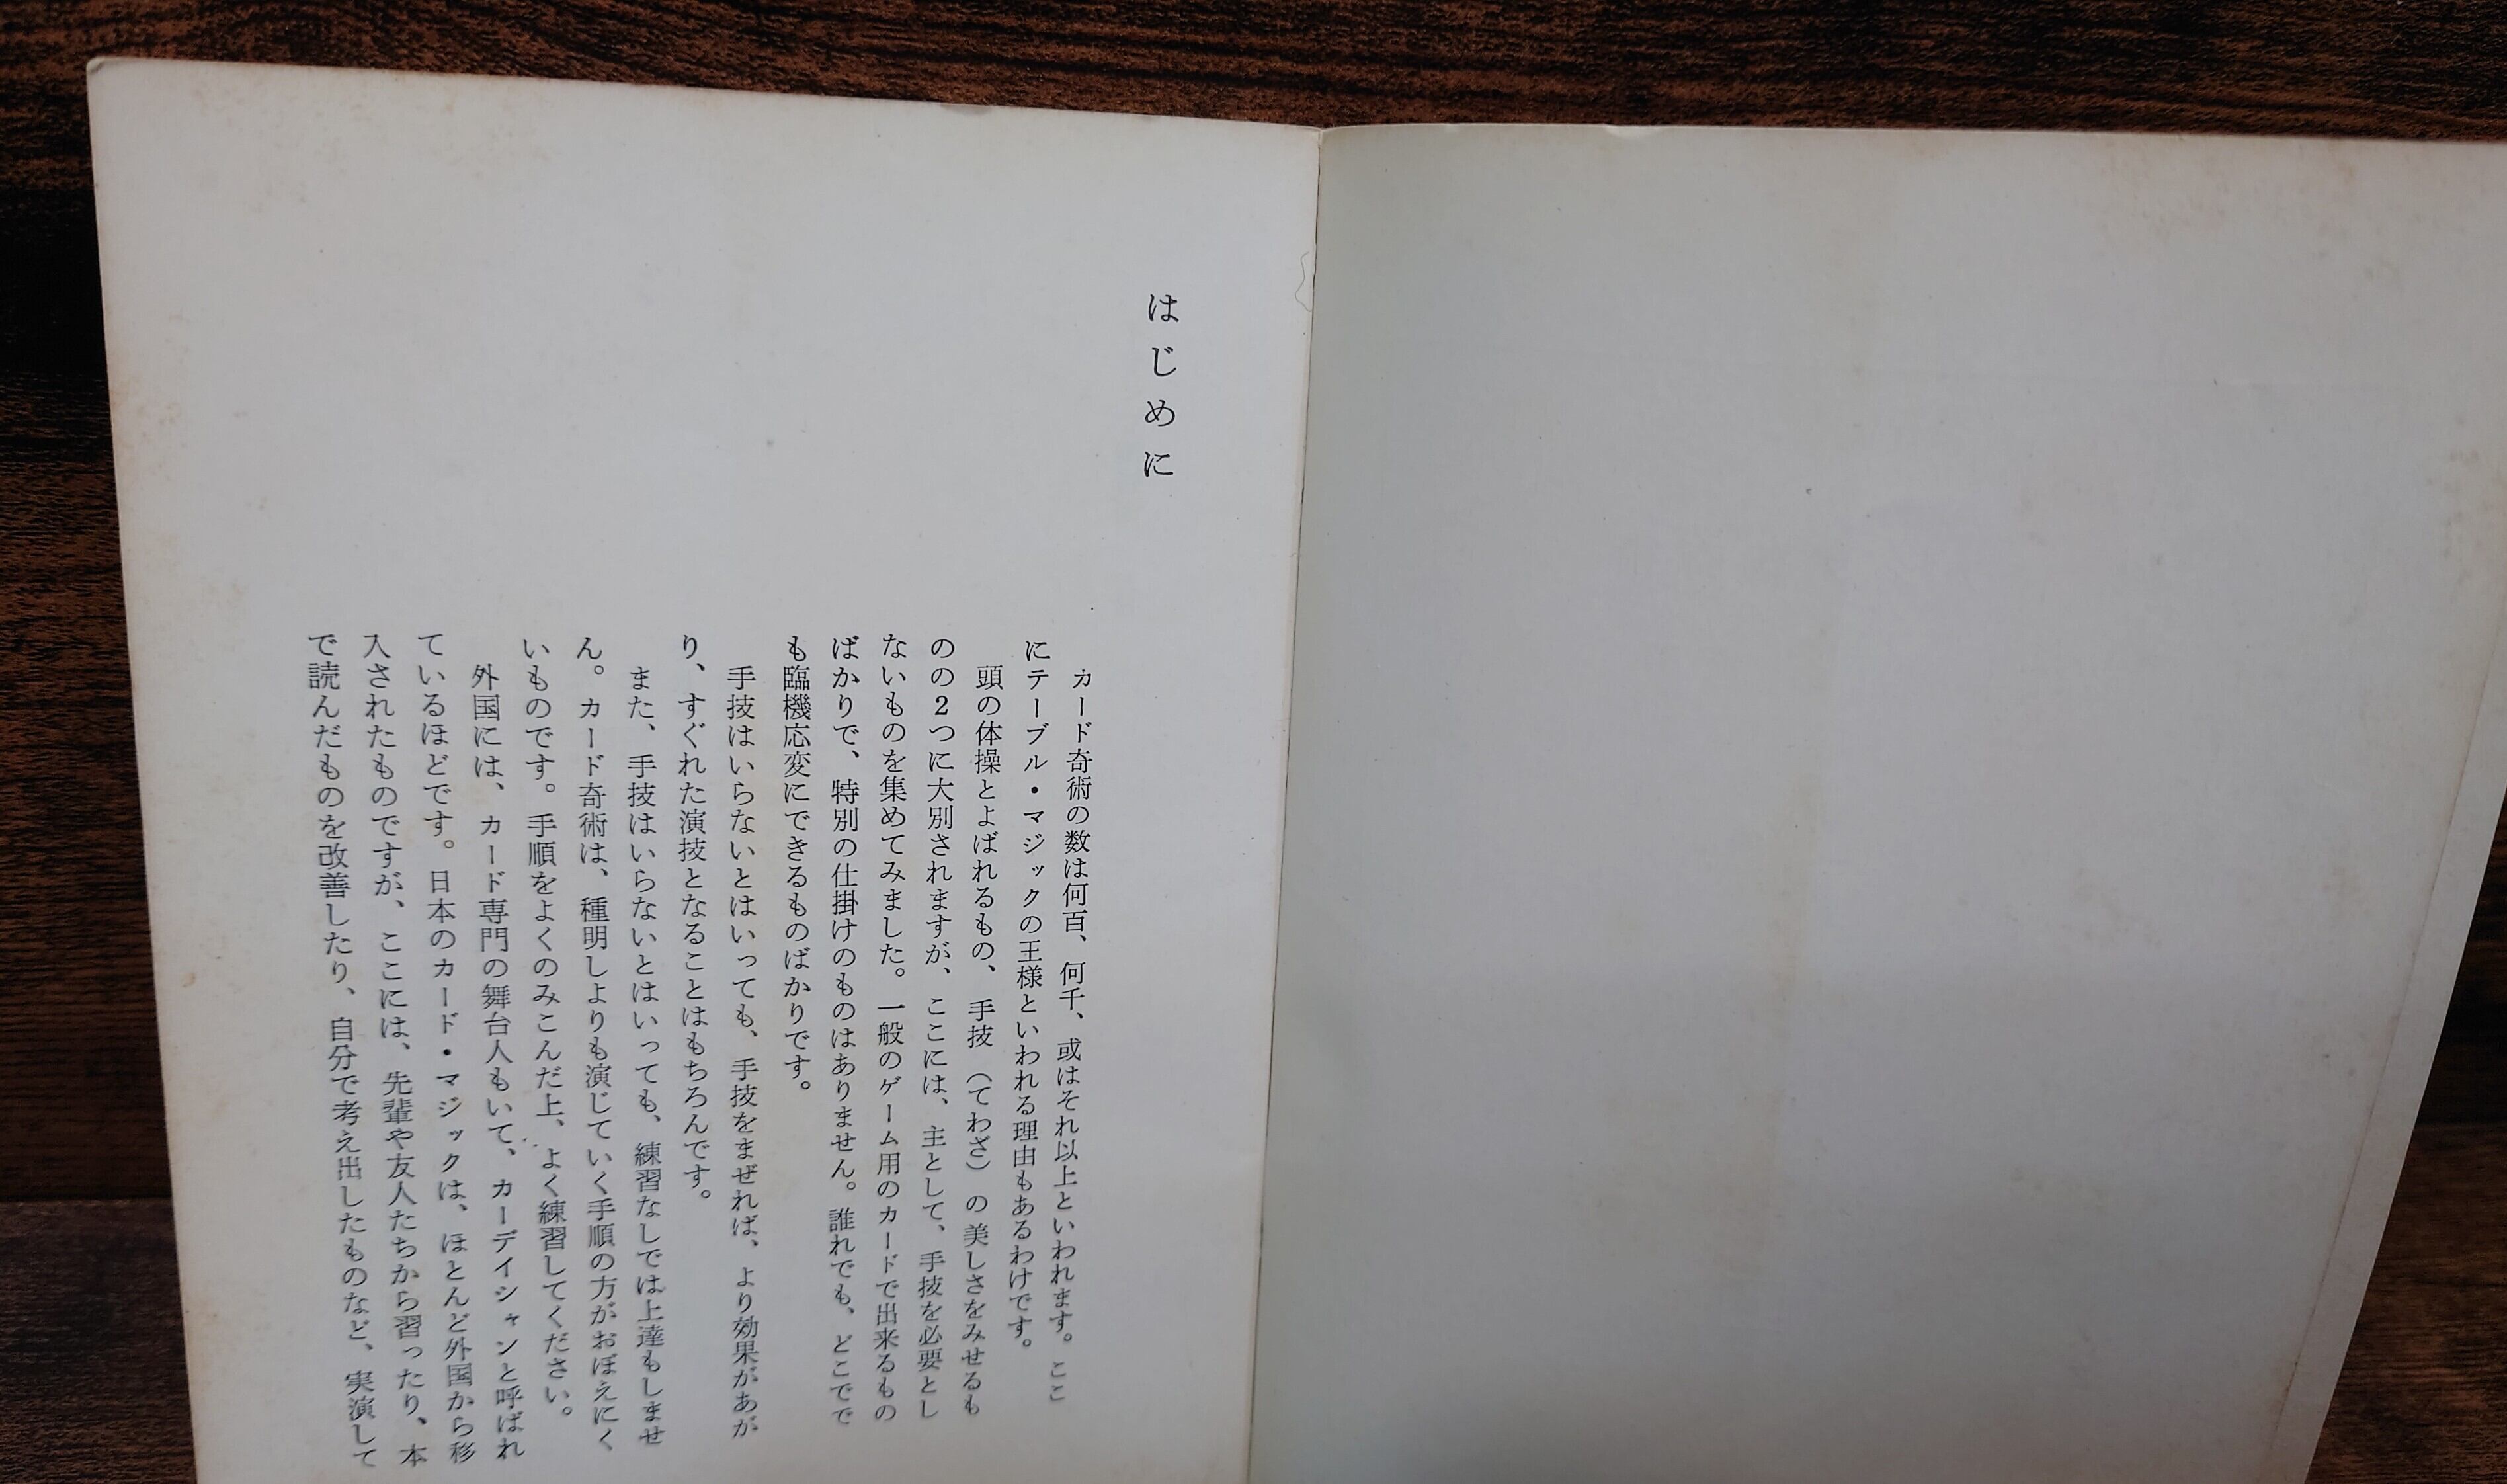 はじめに
カード奇術の数は何百、何千、或はそれ以上といわれます。ここ
にテーブル・マジックの王様といわれる理由もあるわけです。
頭の体操とよばれるもの、手技（てわざ）の美しさをみせるも
のの2つに大別されますが、ここには、主として、手技を必要とし
ないものを集めてみました。一般のゲーム用のカードで出来るもの
ばかりで、特別の仕掛けのものはありません。誰れでも、どこでで
も臨機応変にできるものばかりです。
手技はいらないとはいっても、手技をまぜれば、より効果があが
り、すぐれた演技となることはもちろんです。
また、手技はいらないとはいっても、練習なしでは上達もしませ
ん。カード奇術は、種明しよりも演じていく手順の方がおぼえにく
いものです。手順をよくのみこんだ上、よく練習してください。
外国には、カード専門の舞台人もいて、カーデイシャンと呼ばれ
ているほどです。日本のカード・マジックは、ほとんど外国から移
入されたものですが、ここには、先輩や友人たちから習ったり、本
で読んだものを改善したり、自分で考え出したものなど、実演して